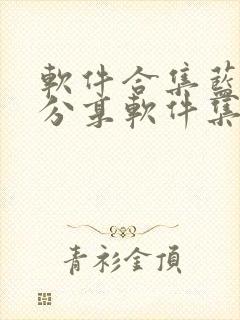 軟件合集藍
分享軟件集
青衫金頂